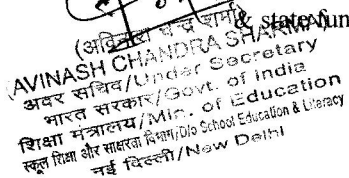 & state fun
(अविनाश चन्द्र शर्मा)
(AVINASH CHANDRA SHARMA)
अवर सचिव/Under Secretary
भारत सरकार/Govt. of India
शिक्षा मंत्रालय/Min. of Education
स्कूल शिक्षा और साक्षरता विभाग/D/o School Education & Literacy
नई दिल्ली/New Delhi